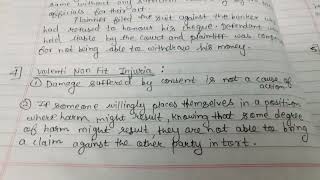 same without any
officials for their act.
Plaintiff filed the suit against the banker who
had refused to honour his cheque. Defendant was
held liable by the Court and plaintiff was compen
for not being able to withdraw his money.
Volenti Non Fit Injuria :
① Damage suffered by consent is not a cause of
action
② If someone willingly places themselves in a position
where harm might result, knowing that some degree
of harm might result, they are not able to bring
a claim against the other party in tort.